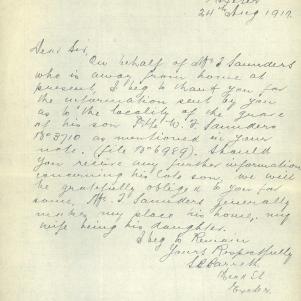 24th Aug 1917
Dear Sir,
On behalf of Mr J Saunders
who is away from home at
present, I beg to thank you for
the information sent by you
as to the locality of the grave
of his son Pte W. J Saunders
No 3710 as mentioned in your
note. (file No 6989). Should
you receive any further information
concerning his late son, we will
be gratefully obliged to you for
same, Mr J Saunders generally
makes my place in home, my
wife being his daughter.
I beg to Remain
Yours Respectfully